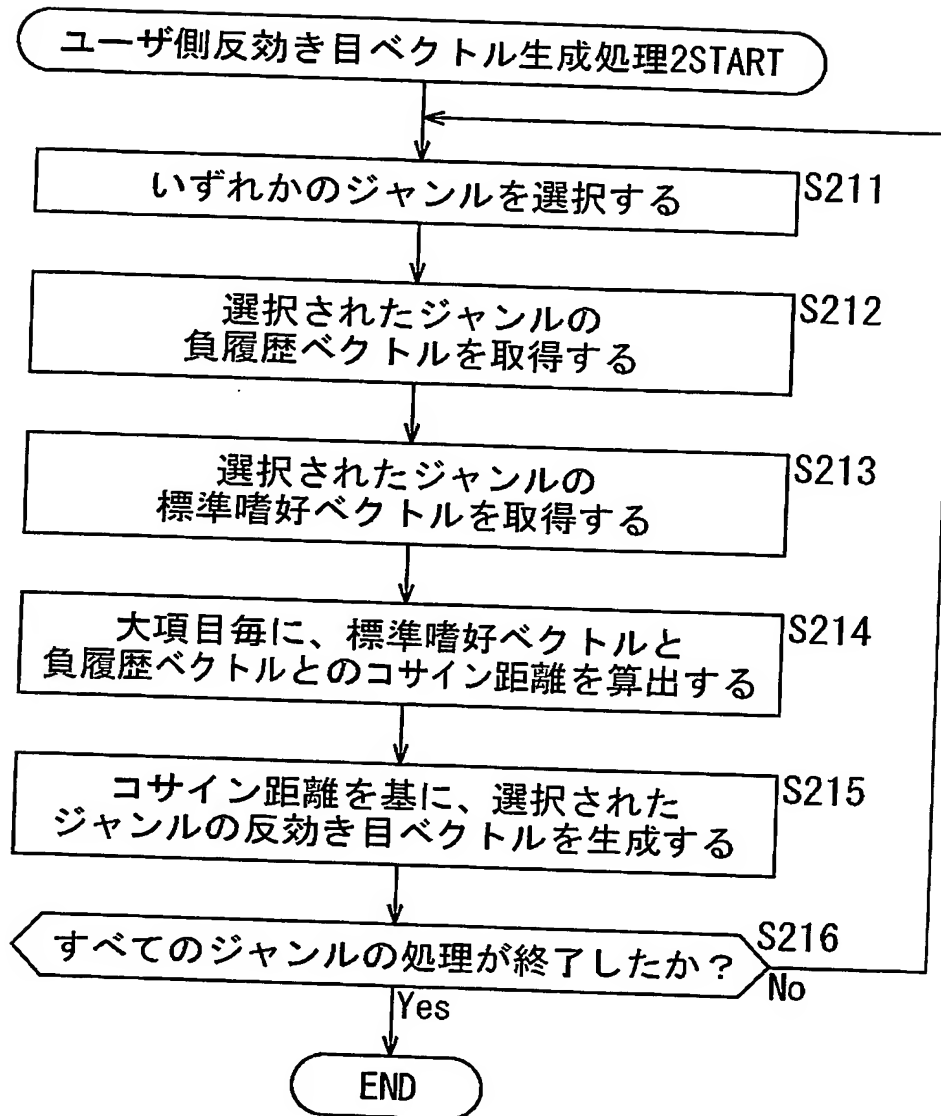 ユーザ側反効き目ベクトル生成処理2START
いずれかのジャンルを選択する
S211
選択されたジャンルの
負履歴ベクトルを取得する
S212
選択されたジャンルの
標準嗜好ベクトルを取得する
S213
大項目毎に、標準嗜好ベクトルと
負履歴ベクトルとのコサイン距離を算出する
S214
コサイン距離を基に、選択された
ジャンルの反効き目ベクトルを生成する
S215
すべてのジャンルの処理が終了したか？
S216
No
Yes
END